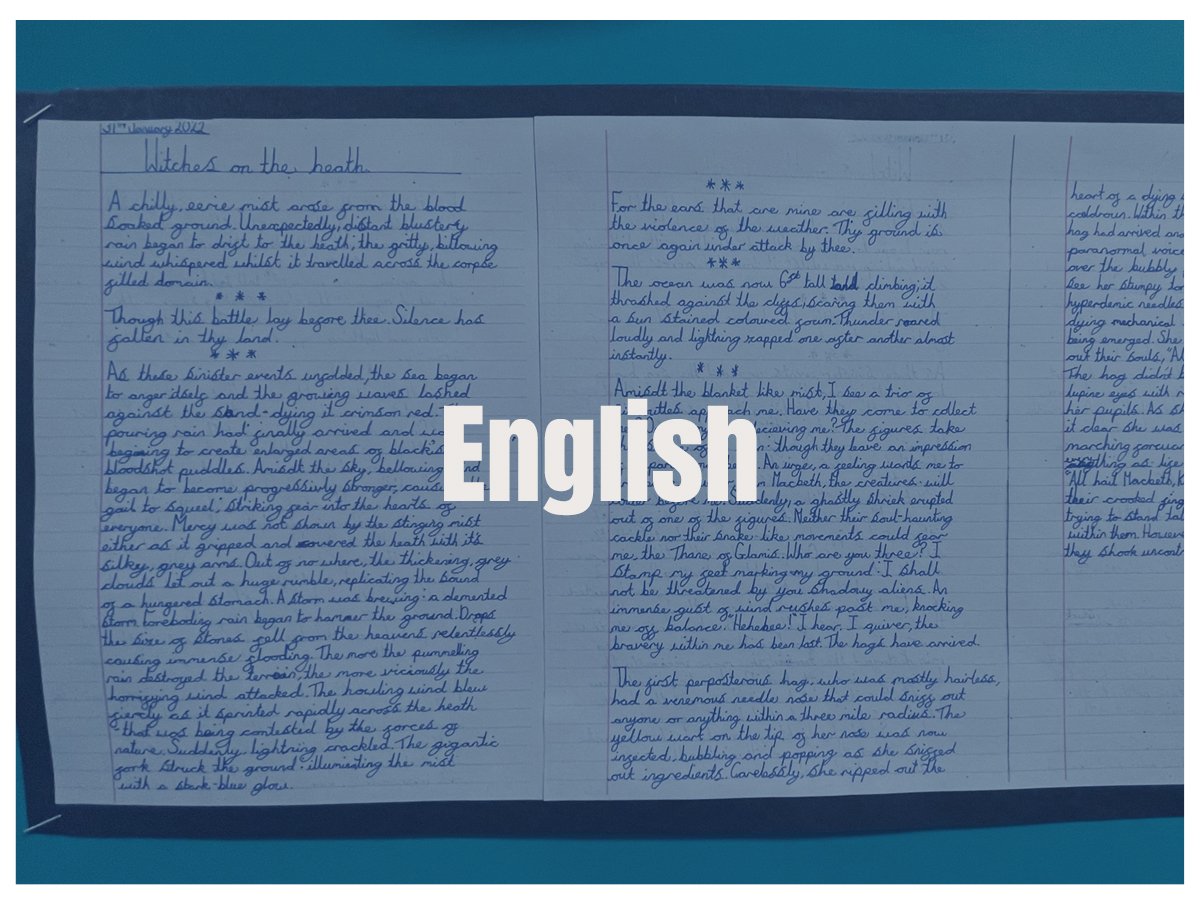 31st January 2022
Witches on the heath.
A chilly, eerie mist arose from the blood
soaked ground. Unexpectedly, distant blustery
rain began to drift to the heath; the gritty, billowing
wind whispered whilst it travelled across the corpse
filled domain.
* * *
Though this battle lay before thee. Silence has
fallen in thy land.
* * *
As these sinister events unfolded, the sea began
to anger itself and the growing waves lashed
against the sand - dying it crimson red. The
pouring rain had finally arrived and
beginning to create enlarged areas of
bloodshot puddles. Amisdt the sky, bellowing
began to become progressivly stronger,
gail to squeel, striking fear into the hearts of
everyone. Mercy was not shown by the stinging mist
either as it gripped and covered the heath with it's
silkey, grey arms. Out of no where, the thickening, grey
clouds let out a huge rumble, replicating the sound
of a hungered stomach. A storm was brewing: a demented
storm. Foreboding rain began to hammer the ground. Drops
the size of stones fall from the heavens relentlessly
causing immense flooding. The more the pummeling
rain destroyed the terrain, the more viciously the
horrifying wind attacked. The howling wind blew
fiercly as it sprinted rapidly across the heath
- that was being contested by the forces of
nature. Suddenly, lightning crackled. The gigantic
fork struck the ground - illuminating the mist
with a stark-blue glow.
* * *
For the ears that are mine are filling with
the violence of the weather. Thy ground is
once again under attack by thee.
* * *
The ocean was now 6ft tall climbing; it
thrashed against the cliffs, scaring them with
a sun stained coloured foam. Thunder roared
loudly and lightning zapped one after another almost
instantly.
* * *
Amisdt the blanket like mist, I see a trio of
approach me. Have they come to collect
me? decieving me? The figures take
of - though they leave an impression
An urge, a feeling wants me to
Macbeth, the creatures - will
before me. Suddenly, a ghastly shriek erupted
out of one of the figures. Neither their soul-haunting
cackle nor their snake like movements could fear
me, the Thane of Glamis. Who are you three? I
stamp my feet marking my ground - I shall
not be threatened by you shadowy aliens. An
immense gust of wind rushes past me, knocking
me off balance. "Hehehee!" I hear, I quiver, the
bravery within me has been lost. The hags have arrived.
The first perposterous hag, who was mostly hairless,
had a venemous needle nose that could sniff out
anyone or anything within a three mile radius. The
yellow wart on the tip of her nose was now
infected, bubbling and popping as she sniffed
out ingredients. Carelessly, she ripped out the
heart of a dying
caldroun. Within
hag had arrived and
paranormal voice
over the bubbly
see her stumpy
hyperdemic needles
dying mechanical
being emerged. She
out their souls, "
The hag didn't
lupine eyes with
her pupils. As
it clear she was
marching
as life
"All hail Macbeth,
their crooked
trying to stand
within them. However
they shook
English